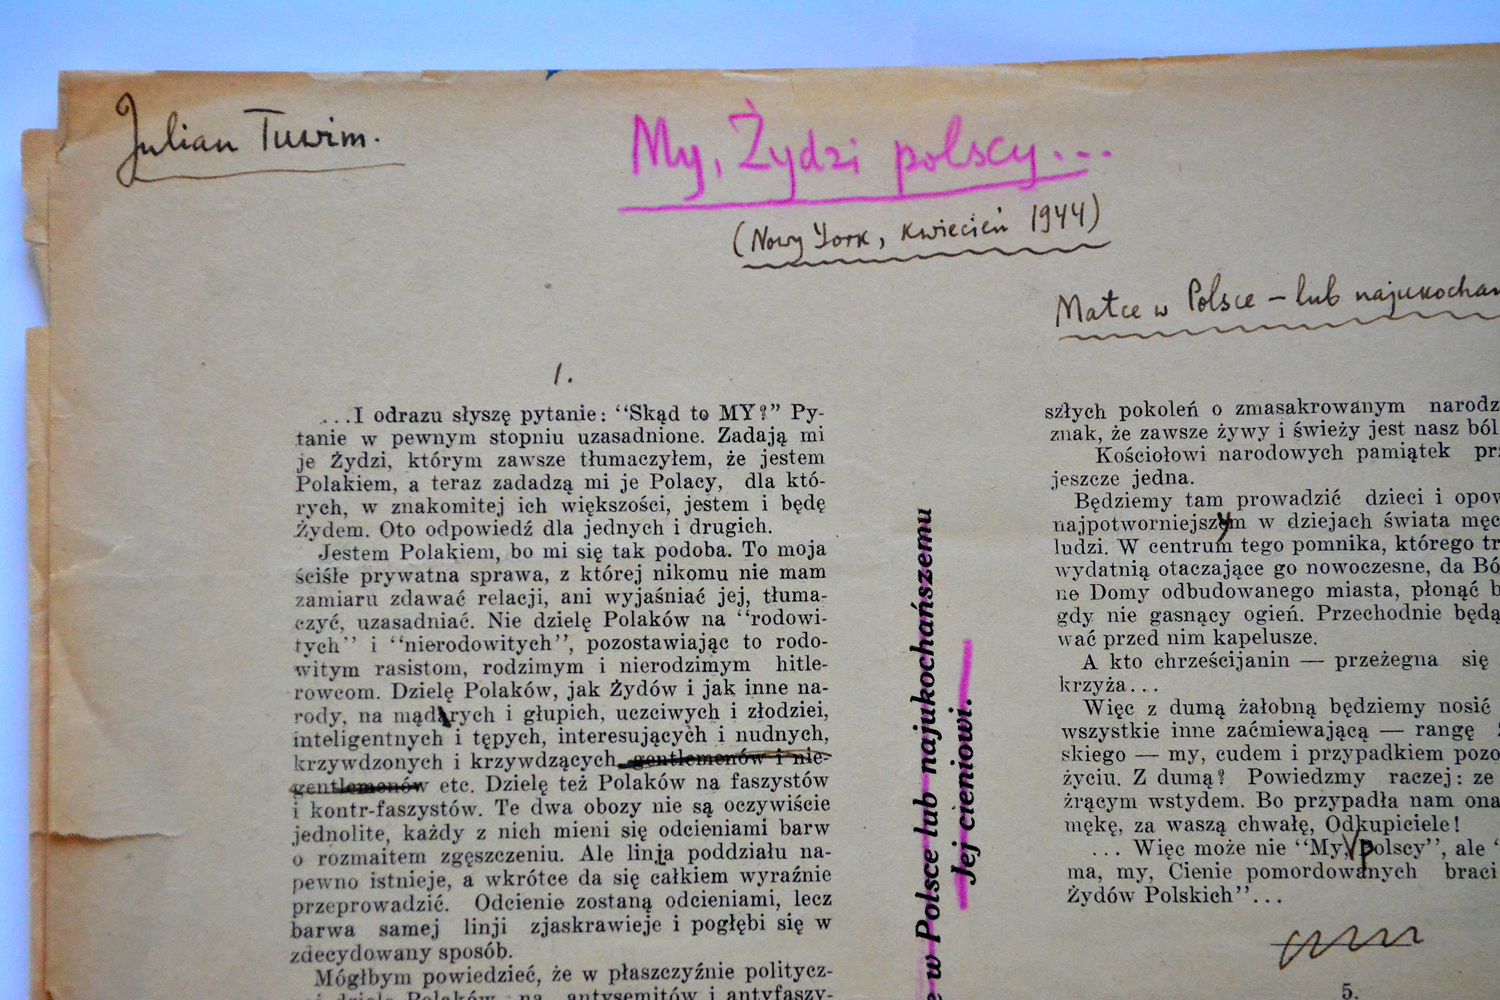 Julian Tuwim.
My, Żydzi polscy...
(Nowy York, kwiecień 1944)
Matce w Polsce – lub najukochań
1.
...I odrazu słyszę pytanie: “Skąd to MY?” Py-
tanie w pewnym stopniu uzasadnione. Zadają mi
je Żydzi, którym zawsze tłumaczyłem, że jestem
Polakiem, a teraz zadadzą mi je Polacy, dla któ-
rych, w znakomitej ich większości, jestem i będę
Żydem. Oto odpowiedź dla jednych i drugich.
Jestem Polakiem, bo mi się tak podoba. To moja
ściśle prywatna sprawa, z której nikomu nie mam
zamiaru zdawać relacji, ani wyjaśniać jej, tłuma-
czyć, uzasadniać. Nie dzielę Polaków na “rodowi-
tych” i “nierodowitych”, pozostawiając to rodo-
witym rasistom, rodzimym i nierodzimym hitle-
rowcom. Dzielę Polaków, jak Żydów i jak inne na-
rody, na mądrych i głupich, uczciwych i złodziei,
inteligentnych i tępych, interesujących i nudnych,
krzywdzonych i krzywdzących, gentlemenów i nie-
gentlemenów etc. Dzielę też Polaków na faszystów
i kontr-faszystów. Te dwa obozy nie są oczywiście
jednolite, każdy z nich mieni się odcieniami barw
o rozmaitem zgęszczeniu. Ale linja poddziału na-
pewno istnieje, a wkrótce da się całkiem wyraźnie
przeprowadzić. Odcienie zostaną odcieniami, lecz
barwa samej linji zjaskrawieje i pogłębi się w
zdecydowany sposób.
Mógłbym powiedzieć, że w płaszczyźnie politycz-
dzielę Polaków na antysemitów i antyfaszy-
w Polsce lub najukochańszemu
Jej cieniowi.
szłych pokoleń o zmasakrowanym narodz
znak, że zawsze żywy i świeży jest nasz ból
Kościołowi narodowych pamiątek prz
jeszcze jedna.
Będziemy tam prowadzić dzieci i opow
najpotworniejszym w dziejach świata męc
ludzi. W centrum tego pomnika, którego tr
wydatnią otaczające go nowoczesne, da Bó
ne Domy odbudowanego miasta, płonąć b
gdy nie gasnący ogień. Przechodnie będą
wać przed nim kapelusze.
A kto chrześcijanin — przeżegna się
krzyża...
Więc z dumą żałobną będziemy nosić
wszystkie inne zaćmiewającą — rangę
skiego — my, cudem i przypadkiem pozo
życiu. Z dumą? Powiedzmy raczej: ze
żrącym wstydem. Bo przypadła nam ona
mękę, za waszą chwałę, Odkupiciele!
... Więc może nie “My, polscy”, ale ‘
ma, my, Cienie pomordowanych braci
Żydów Polskich”...
5.